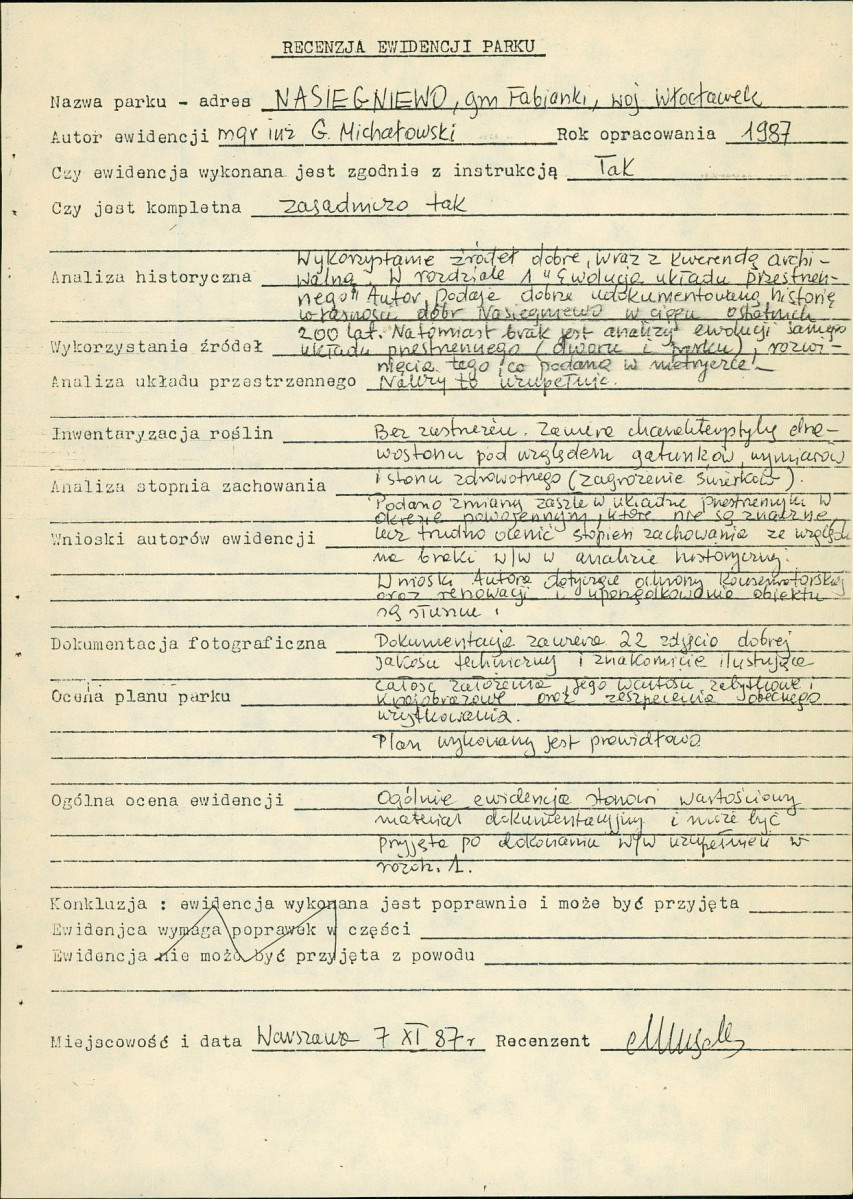 RECENZJA EWIDENCJI PARKU
Nazwa parku - adres NASIEGNIEWO, gm Fabianki, woj Włocławek
Autor ewidencji mgr inż G. Michałowski Rok opracowania 1987
Czy ewidencja wykonana jest zgodnie z instrukcją Tak
Czy jest kompletna zasadniczo tak
Wykorzystanie źródeł dobre, wraz z kwerendą archi-
Analiza historyczna walną. W rozdziale 1 "Ewolucja układu przestrzen-
nego" Autor podaje dobrze udokumentowaną historię
własności dóbr Nasiegniewo w ciągu ostatnich
200 lat. Natomiast brak jest analizy ewolucji samego
Wykorzystanie źródeł układu przestrzennego (dworu i parku), rozwi-
nięcia tego, co podano w metryczce.
Analiza układu przestrzennego Należy to uzupełnić.
Inwentaryzacja roślin Bez zastrzeżeń. Zawiera charakterystykę drze-
wostanu pod względem gatunków, wymiarów
Analiza stopnia zachowania i stanu zdrowotnego (zagrożenie świerków).
Podano zmiany zaszłe w układzie przestrzennym w
okresie powojennym, które nie są znaczne
Wnioski autorów ewidencji lecz trudno ocenić stopień zachowania ze względu
na braki w/w w analizie historycznej.
Wnioski Autora dotyczące ochrony konserwatorskiej
oraz renowacji i uporządkowania obiektu
są słuszne.
Dokumentacja fotograficzna Dokumentacja zawiera 22 zdjęcia dobrej
jakości technicznej i znakomicie ilustrujące
całość założenia, jego wartości zabytkowe i
Ocena planu parku krajobrazowe oraz zeszpecenia obecnego
użytkowania.
Plan wykonany jest prawidłowo
Ogólna ocena ewidencji Ogólnie ewidencja stanowi wartościowy
materiał dokumentacyjny i może być
przyjęta po dokonaniu w/w uzupełnień w
rozdz. 1.
Konkluzja : ewidencja wykonana jest poprawnie i może być przyjęta
Ewidenjca wymaga poprawek w części
Ewidencja nie może być przyjęta z powodu
Miejscowość i data Warszawa 7 XI 87r Recenzent